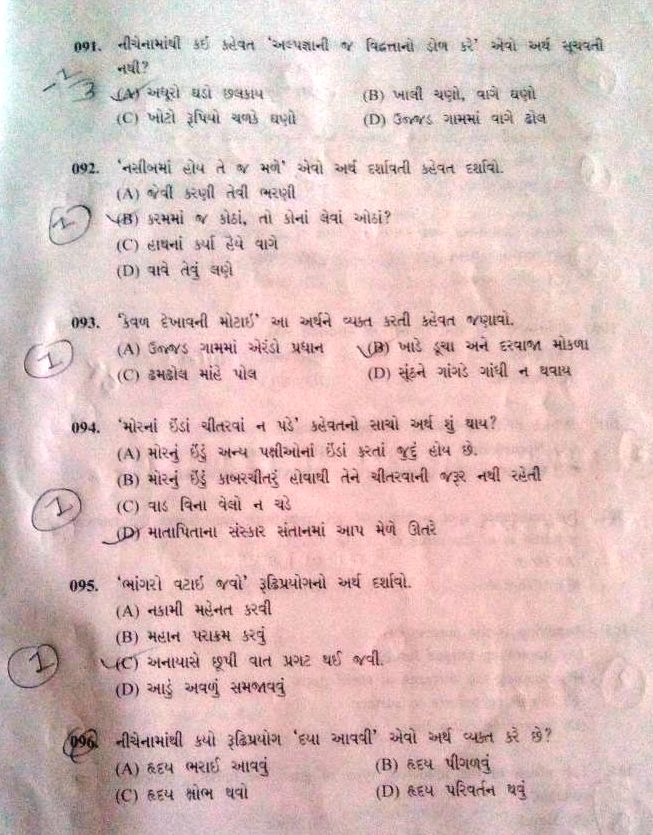 091. નીચેનામાંથી કઈ કહેવત 'અલ્પજ્ઞાની જ વિદ્વત્તાનો ડોળ કરે' એવો અર્થ સૂચવતી
નથી?
(A) અધૂરો ઘડો છલકાય (B) ખાલી ચણો, વાગે ઘણો
-1/3
(C) ખોટો રૂપિયો ચળકે ઘણો (D) ઉજ્જડ ગામમાં વાગે ઢોલ
092. 'નસીબમાં હોય તે જ મળે' એવો અર્થ દર્શાવતી કહેવત દર્શાવો.
(A) જેવી કરણી તેવી ભરણી
1 (B) કરમમાં જ કોઠાં, તો કોનાં લેવાં ઓઠાં?
(C) હાથનાં કર્યાં હૈયે વાગે
(D) વાવે તેવું લણે
093. 'કેવળ દેખાવની મોટાઈ' આ અર્થને વ્યક્ત કરતી કહેવત જણાવો.
(A) ઉજ્જડ ગામમાં એરંડો પ્રધાન (B) ખાડે ડૂચા અને દરવાજા મોકળા
1
(C) ઢમઢોલ માંહે પોલ (D) સુંઠને ગાંગડે ગાંધી ન થવાય
094. 'મોરનાં ઈંડાં ચીતરવાં ન પડે' કહેવતનો સાચો અર્થ શું થાય?
(A) મોરનું ઈંડું અન્ય પક્ષીઓનાં ઈંડાં કરતાં જુદું હોય છે.
(B) મોરનું ઈંડું કાબરચીતરું હોવાથી તેને ચીતરવાની જરૂર નથી રહેતી
1 (C) વાડ વિના વેલો ન ચડે
(D) માતાપિતાના સંસ્કાર સંતાનમાં આપ મેળે ઊતરે
095. 'ભાંગરો વટાઈ જવો' રૂઢિપ્રયોગનો અર્થ દર્શાવો.
(A) નકામી મહેનત કરવી
(B) મહાન પરાક્રમ કરવું
1 (C) અનાયાસે છૂપી વાત પ્રગટ થઈ જવી.
(D) આડું અવળું સમજાવવું
096. નીચેનામાંથી કયો રૂઢિપ્રયોગ 'દયા આવવી' એવો અર્થ વ્યક્ત કરે છે?
(A) હૃદય ભરાઈ આવવું (B) હૃદય પીગળવું
(C) હૃદય ક્ષોભ થવો (D) હૃદય પરિવર્તન થવું